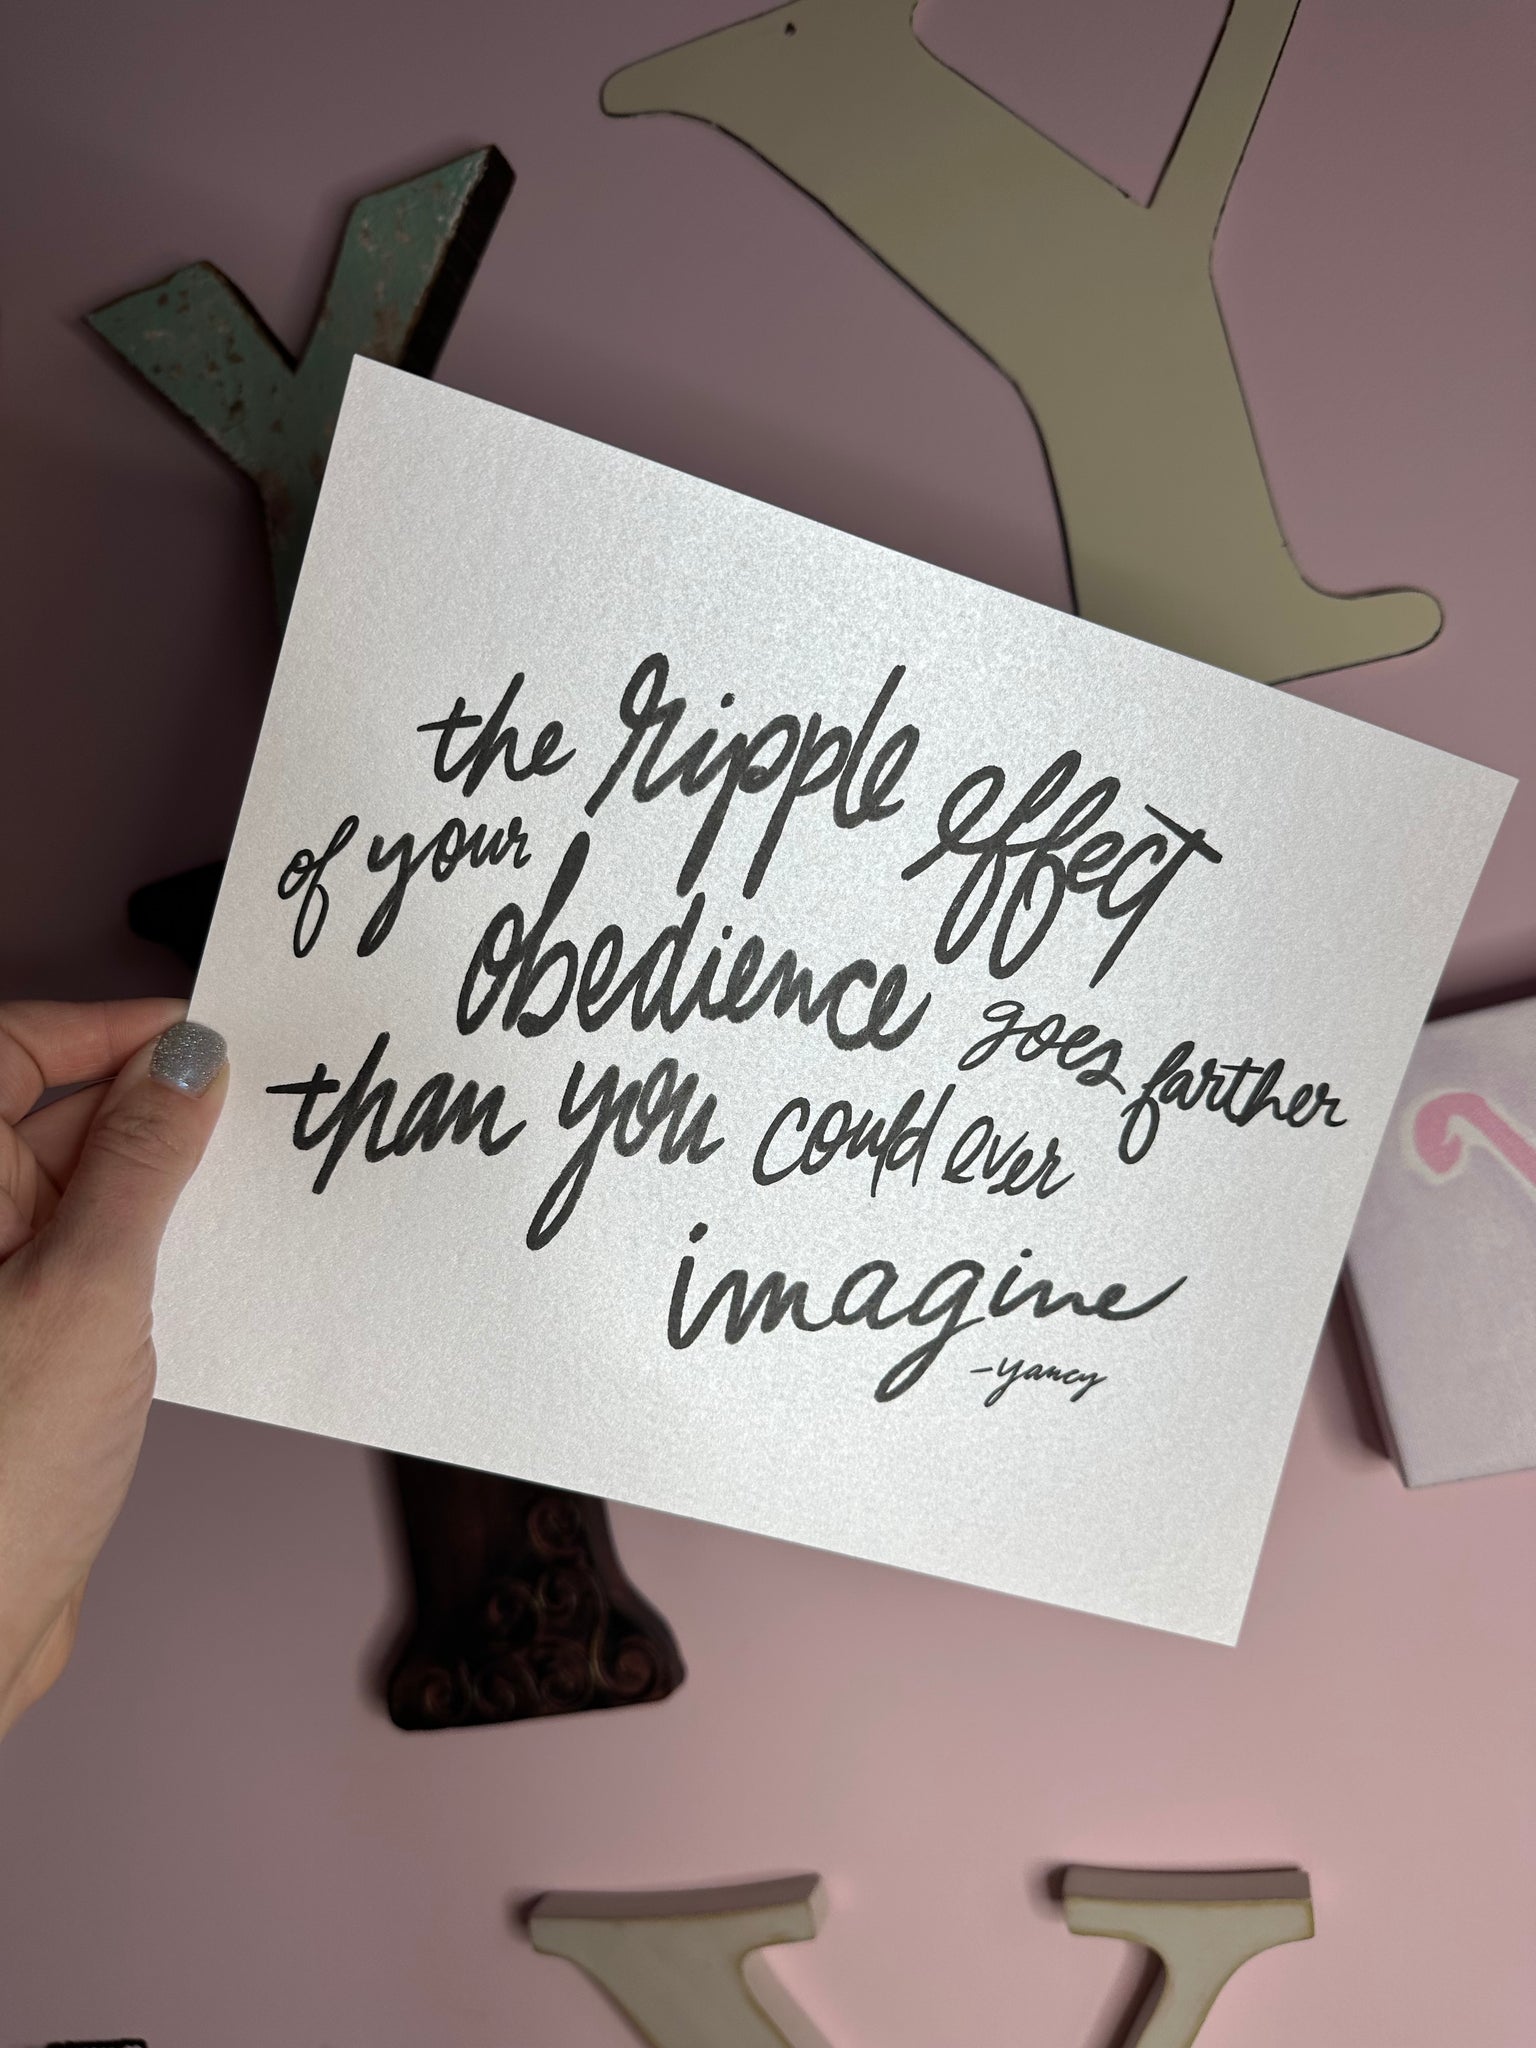 the ripple effect
of your obedience goes farther
than you could ever
imagine
-yancy
Y
Y
Y